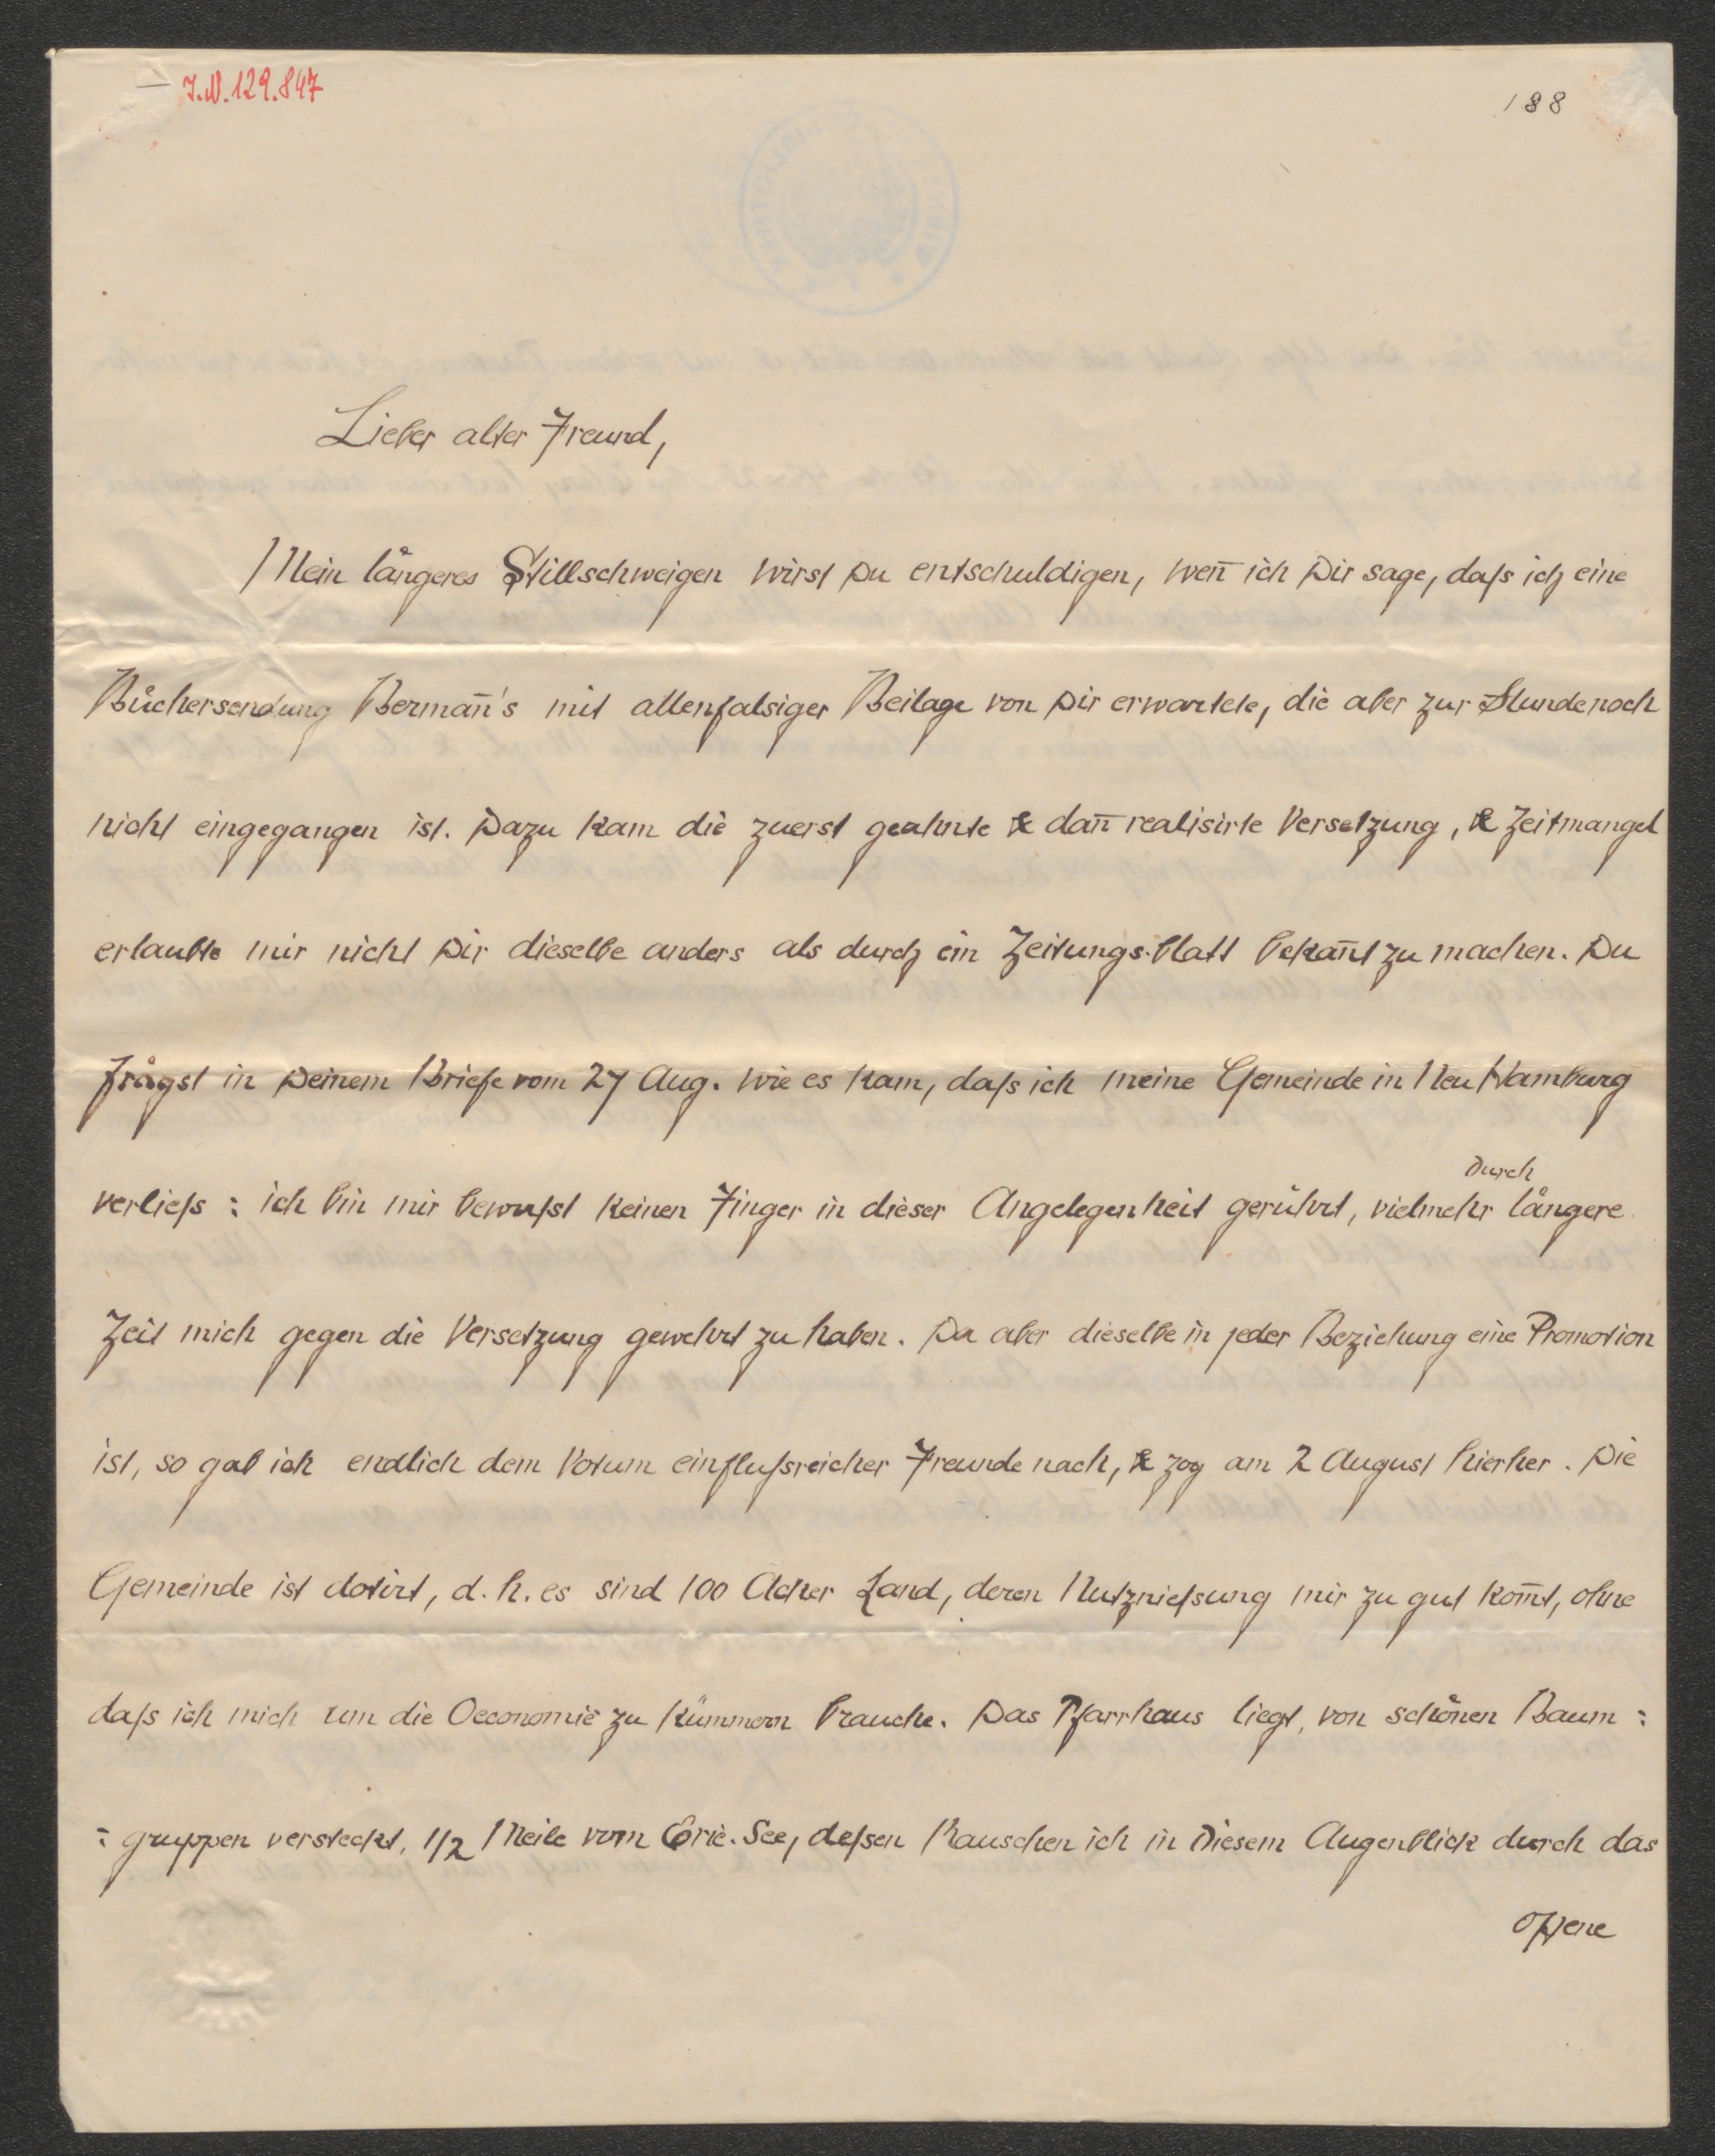 I.N. 129.847
188
Lieber alter Freund,
Mein längeres Stillschweigen wirst Du entschuldigen, weñ ich Dir sage, daſs ich eine
Büchersendung Bermañ's mit allenfalsiger Beilage von Dir erwartete, die aber zur Stunde noch
nicht eingegangen ist. Dazu kam die zuerst geahnte & dañ realisirte Versetzung, & Zeitmangel
erlaubte mir nicht Dir dieselbe anders als durch ein Zeitungs-blatt bekañt zu machen. Du
frägst in Deinem Briefe vom 27 Aug. wie es kam, daſs ich meine Gemeinde in Neu Hamburg
durch
verlieſs: ich bin mir bewuſst keinen Finger in dieser Angelegenheit gerührt, vielmehr längere
Zeit mich gegen die Versetzung gewehrt zu haben. Da aber dieselbe in jeder Beziehung eine Promotion
ist, so gab ich endlich dem Votum einfluſsreicher Freunde nach, & zog am 2 August hierher. Die
Gemeinde ist dotirt, d. h. es sind 100 Acker Land, deren Nutznieſsung mir zu gut kom̄t, ohne
daſs ich mich um die Oeconomie zu kümmern brauche. Das Pfarrhaus liegt, von schönen Baum:
:gruppen versteckt, 1/2 Meile vom Erie-See, deſsen Rauschen ich in diesem Augenblick durch das
offene